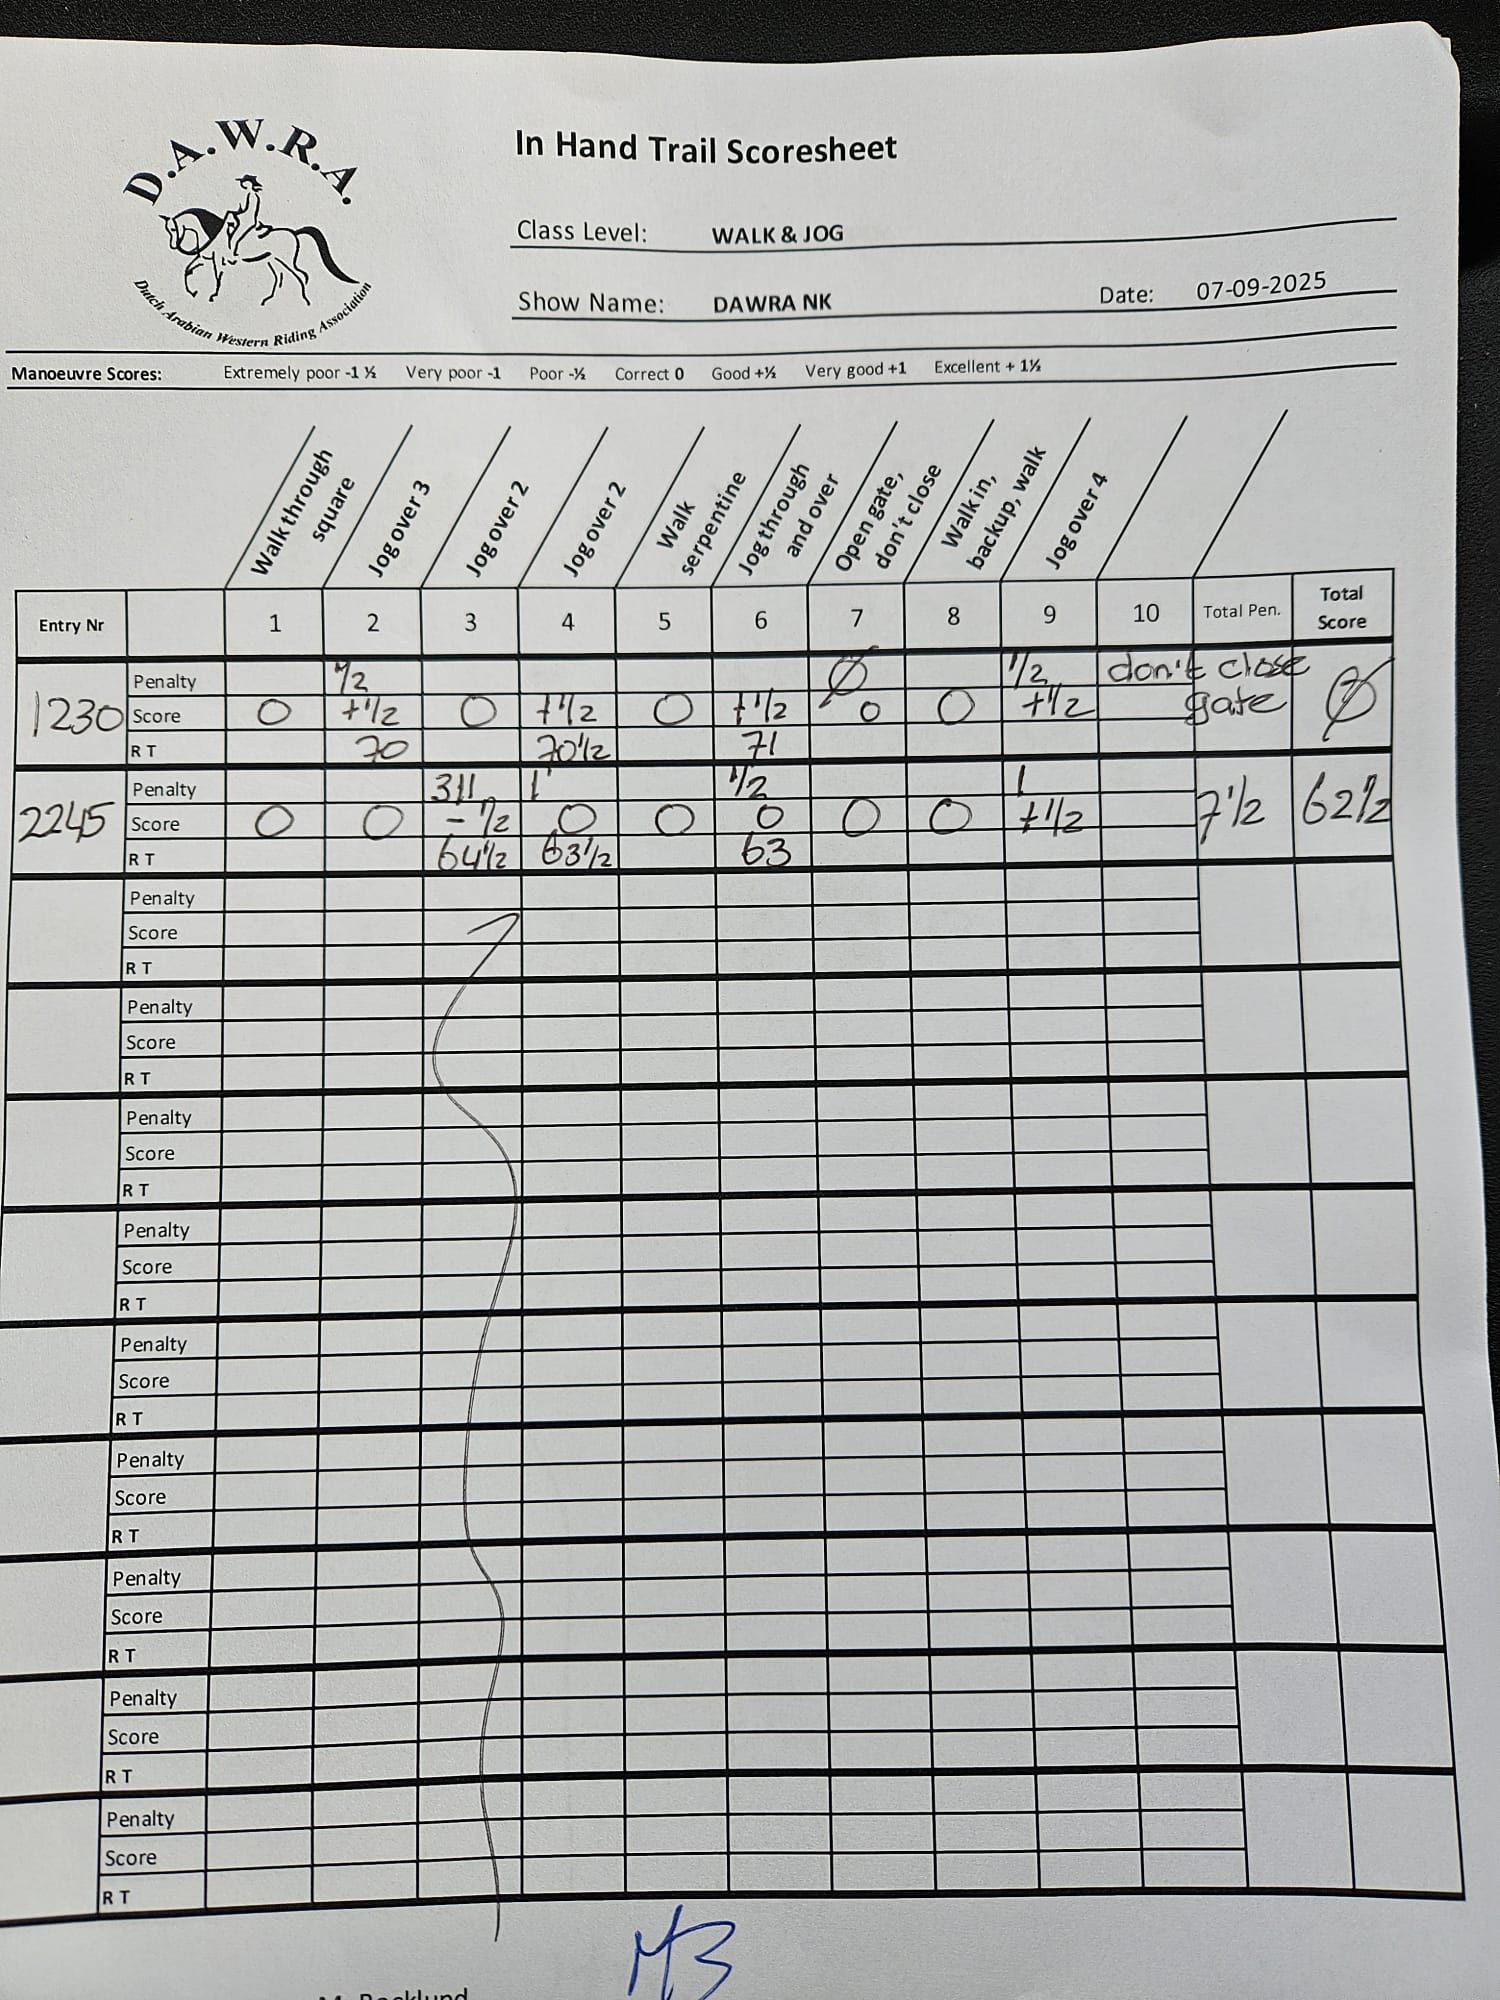 D.A.W.R.A.
Dutch Arabian Western Riding Association
In Hand Trail Scoresheet
Class Level: WALK & JOG
Show Name: DAWRA NK Date: 07-09-2025
Manoeuvre Scores: Extremely poor -1 ½ Very poor -1 Poor -½ Correct 0 Good +½ Very good +1 Excellent + 1½
Walk through square
Jog over 3
Jog over 2
Jog over 2
Walk serpentine
Jog through and over
Open gate, don't close
Walk in, backup, walk
Jog over 4
Entry Nr 1 2 3 4 5 6 7 8 9 10 Total Pen. Total Score
1230
Penalty 1/2 Ø 1/2 don't close gate Ø
Score 0 +1/2 0 +1/2 0 +1/2 0 0 +1/2
R T 70 70 1/2 71
2245
Penalty 311 1 1/2 1 7 1/2 62 1/2
Score 0 0 - 1/2 0 0 0 0 0 +1/2
R T 64 1/2 63 1/2 63
Penalty
Score
R T
Penalty
Score
R T
Penalty
Score
R T
Penalty
Score
R T
Penalty
Score
R T
Penalty
Score
R T
Penalty
Score
R T
Penalty
Score
R T
Penalty
Score
R T
MB